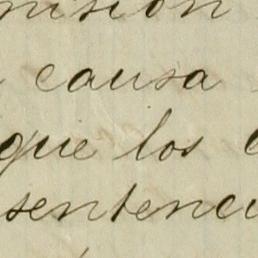 misión
causa
que los
sentenci